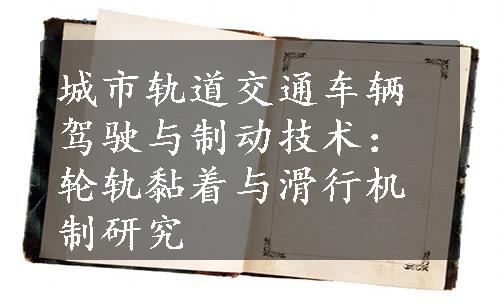 城市轨道交通车辆
驾驶与制动技术：
轮轨黏着与滑行机
制研究